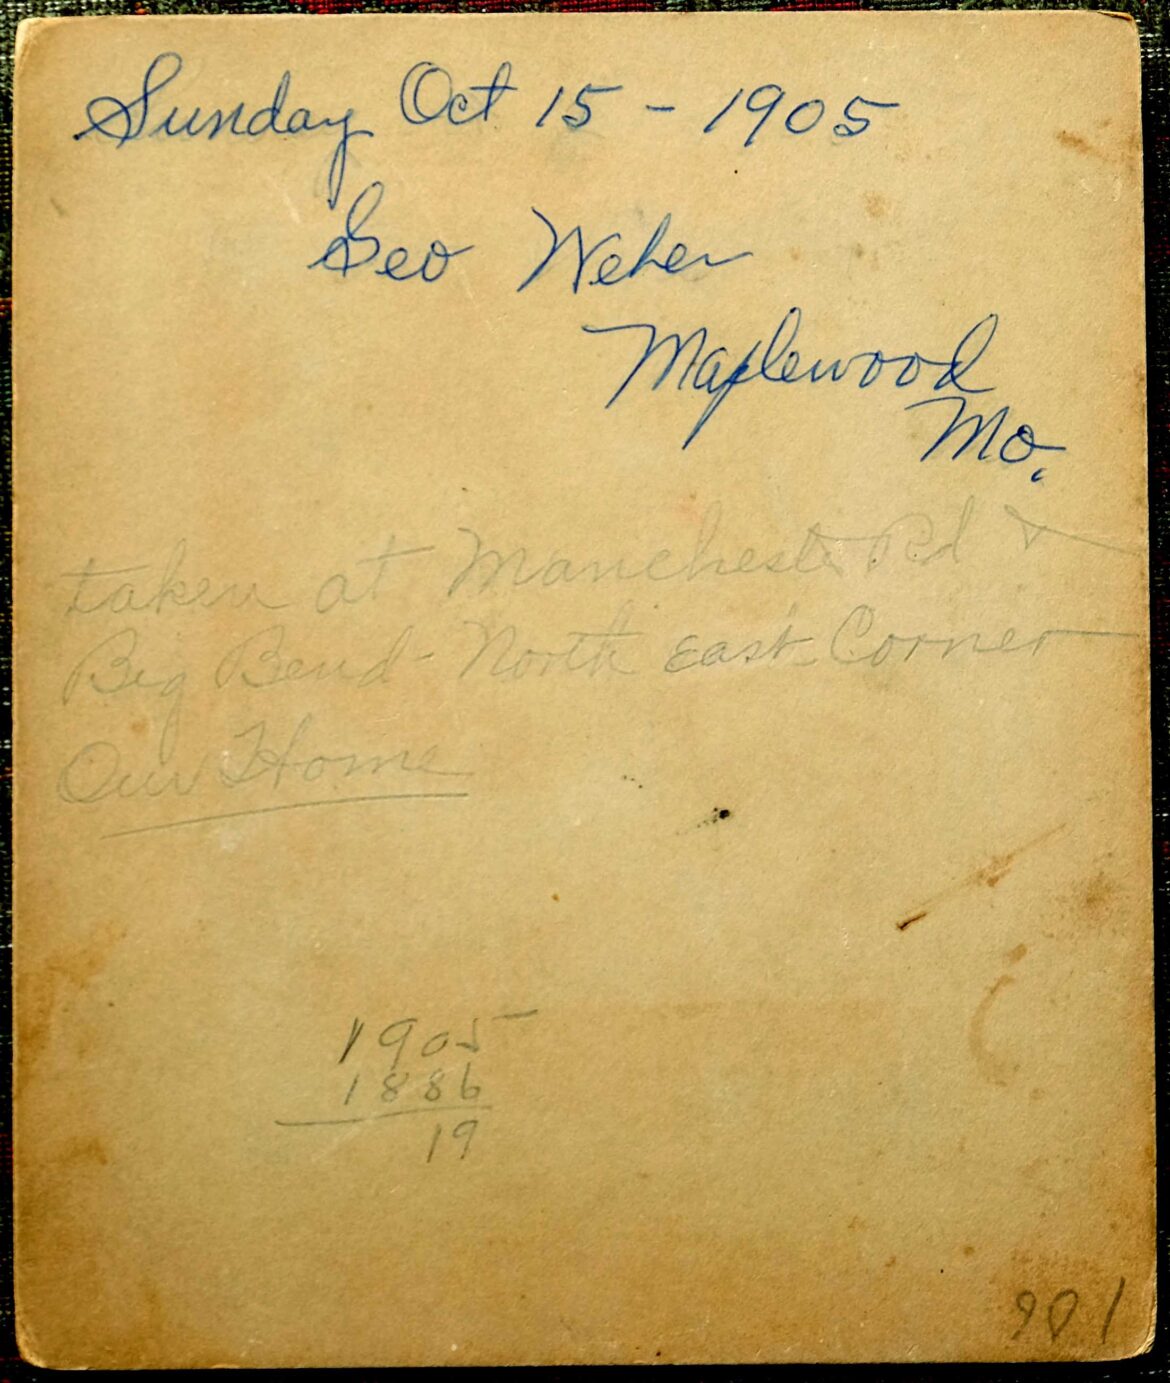 Sunday Oct 15 - 1905
Geo Weber
Maplewood
Mo.
taken at Manchester Rd &
Big Bend - North East Corner
Our Home
1905
1886
19
901